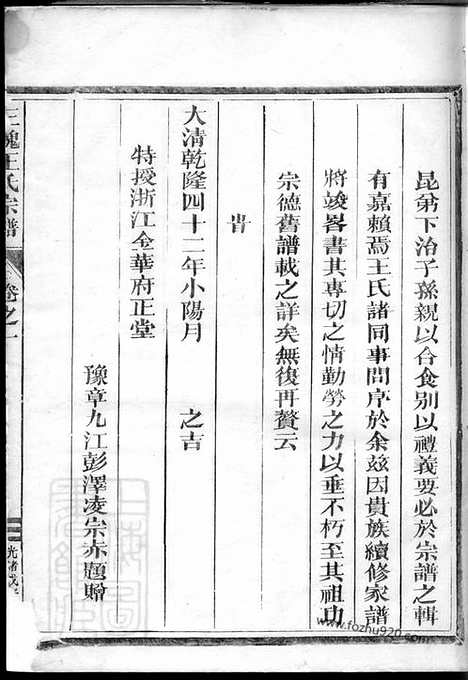 昆弟下治子孫親以合食别以禮義要必於宗譜之輯
有嘉賴焉王氏諸同事問序於余兹因貴族續修家譜
將竣畧書其專切之情勤勞之力以垂不朽至其祖功
宗德舊譜載之詳矣無復再贅云
旹
大清乾隆四十二年小陽月 之吉
特授浙江金華府正堂
豫章九江彭澤凌宗亦題贈
三槐王氏宗譜
卷之一
光緒戊子
www.fozhu920.com